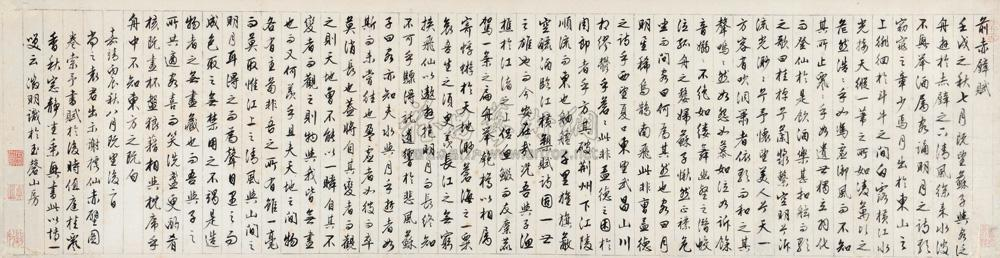 前赤壁賦
壬戌之秋七月既望蘇子與客泛
舟遊於赤壁之下清風徐來水波
不興舉酒屬客誦明月之詩歌
窈窕之章少焉月出於東山之
上徘徊於斗牛之間白露橫江水
光接天縱一葦之所如凌萬頃之
茫然浩浩乎如馮虛御風而不知
其所止飄飄乎如遺世獨立羽化
而登仙於是飲酒樂甚扣舷而歌
之歌曰桂棹兮蘭槳擊空明兮泝
流光渺渺兮予懷望美人兮天一
方客有吹洞簫者倚歌而和之其
聲嗚嗚然如怨如慕如泣如訴餘
音嫋嫋不絕如縷舞幽壑之潛蛟
泣孤舟之嫠婦蘇子愀然正襟危
坐而問客曰何為其然也客曰月
明星稀烏鵲南飛此非曹孟德
之詩乎西望夏口東望武昌山川
相繆鬱乎蒼蒼此非孟德之困於
周郎者乎方其破荊州下江陵
順流而東也舳艫千里旌旗蔽
空釃酒臨江橫槊賦詩固一世
之雄也而今安在哉況吾與子漁
樵於江渚之上侶魚蝦而友麋鹿
駕一葉之扁舟舉匏樽以相屬
寄蜉蝣於天地渺滄海之一粟
哀吾生之須臾羨長江之無窮
挾飛仙以遨遊抱明月而長終知
不可乎驟得託遺響於悲風蘇
子曰客亦知夫水與月乎逝者如
斯而未嘗往也盈虛者如彼而卒
莫消長也蓋將自其變者而觀
之則天地曾不能以一瞬自其不
變者而觀之則物與我皆無盡
也而又何羨乎且夫天地之間物
各有主苟非吾之所有雖一毫
而莫取惟江上之清風與山間之
明月耳得之而為聲目遇之而
成色取之無禁用之不竭是造
物者之無盡藏也而吾與子之
所共適客喜而笑洗盞更酌肴
核既盡杯盤狼籍相與枕藉乎
舟中不知東方之既白
嘉靖丙辰秋八月既望後二日
尚之老君出示謝樗仙赤壁圖
卷索予書賦於後時值庭桂襲
香秋窗靜坐乘興書此以博一
笑云 徵明識於玉磬山房